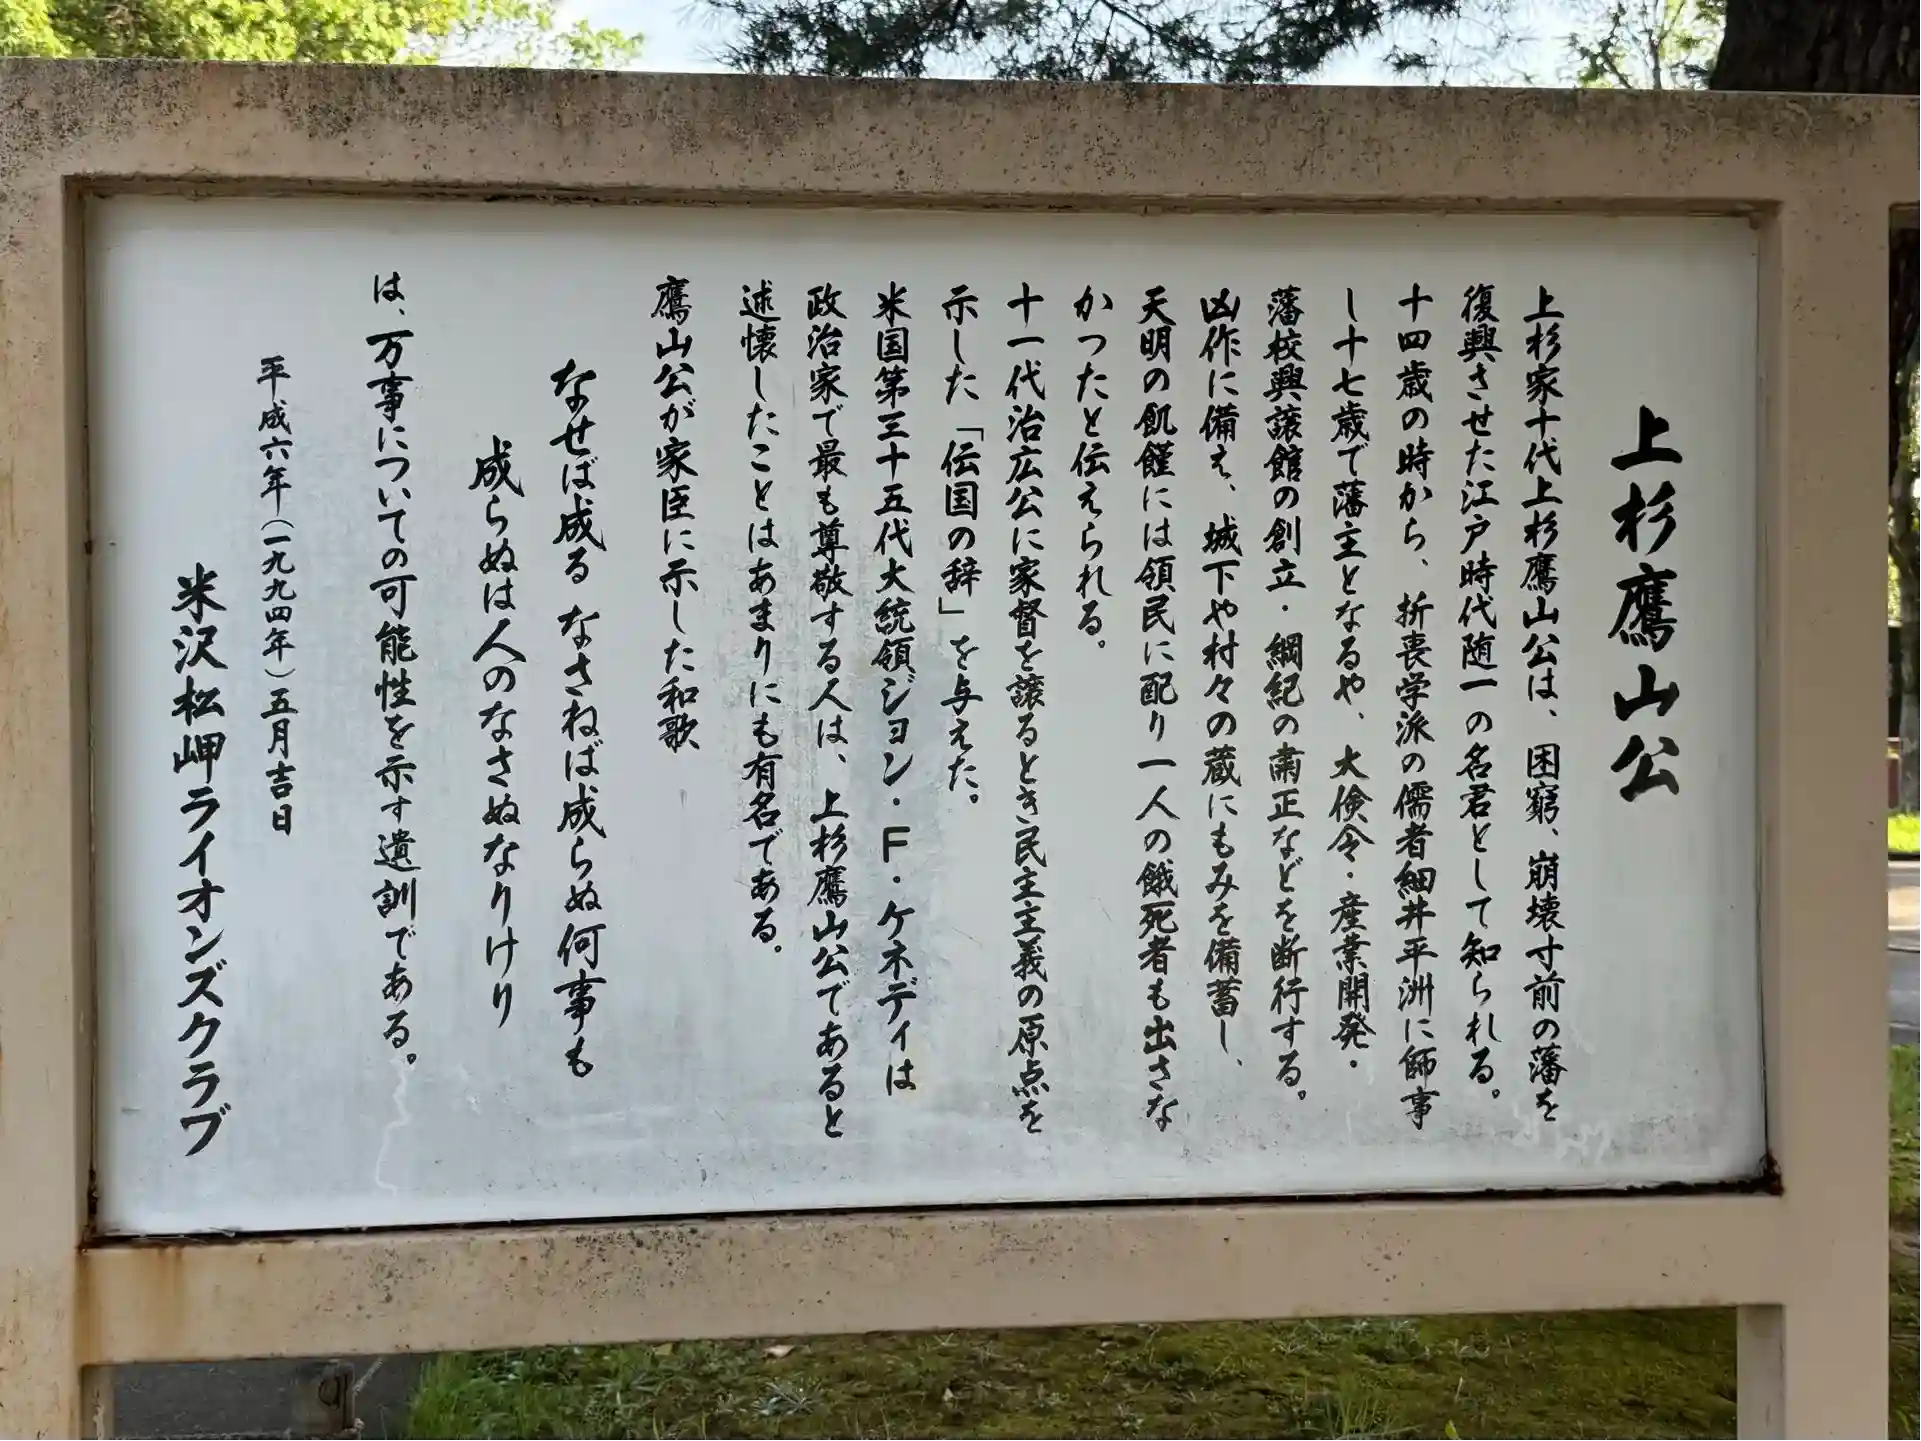 上杉鷹山公
上杉家十代上杉鷹山公は、困窮、崩壊寸前の藩を
復興させた江戸時代随一の名君として知られる。
十四歳の時から、折衷学派の儒者細井平洲に師事
し十七歳で藩主となるや、大倹令・産業開発・
藩校興譲館の創立・綱紀の粛正などを断行する。
凶作に備え、城下や村々の蔵にもみを備蓄し、
天明の飢饉には領民に配り一人の餓死者も出さな
かつたと伝えられる。
十一代治広公に家督を譲るとき民主主義の原点を
示した「伝国の辞」を与えた。
米国第三十五代大統領ジョン・F・ケネディは
政治家で最も尊敬する人は、上杉鷹山公であると
述懐したことはあまりにも有名である。
鷹山公が家臣に示した和歌
なせば成る なさねば成らぬ何事も
成らぬは人のなさぬなりけり
は、万事についての可能性を示す遺訓である。
平成六年（一九九四年）五月吉日
米沢松岬ライオンズクラブ